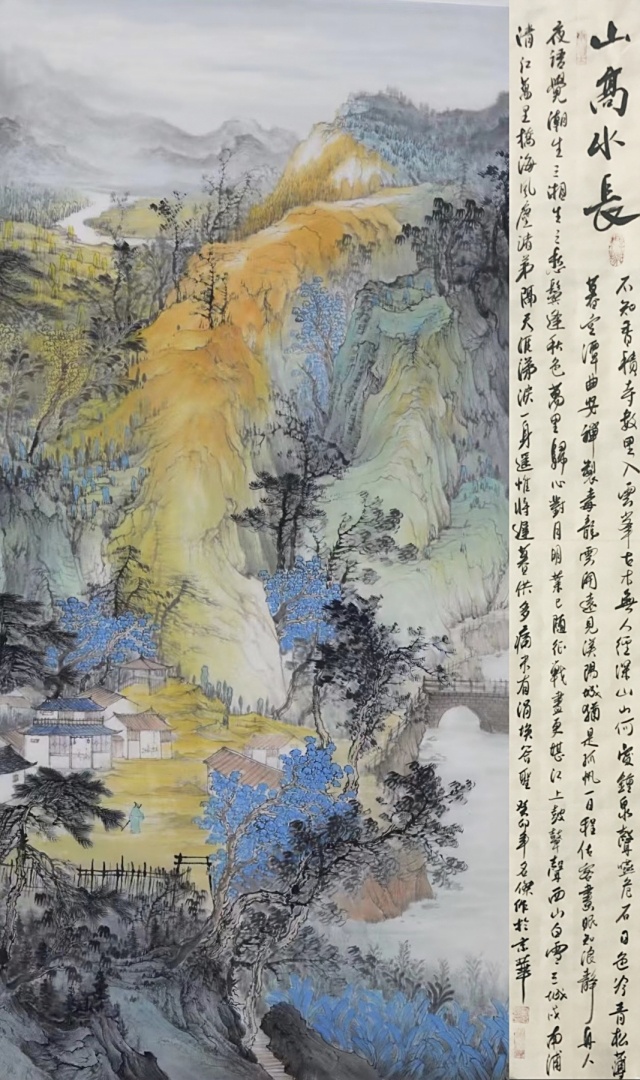 山高水長
不知香積寺数里入雲峯古木無人徑深山山何處鐘泉聲咽危石日色冷青松薄
暮空潭曲安禪製毒龍雲開遠見漢陽城猶是孤帆一日程估客晝眠知浪靜舟人
夜語覺潮生三湘生三愁鬢逢秋色萬里歸心對月明業已随征戰盡更堪江上鼓鼙聲西山白雪三城戍南浦
清江萬里橋海風塵諸弟隔天涯涕淚一身遥惟將遲暮供多病未有涓埃答聖癸卯年作於京華